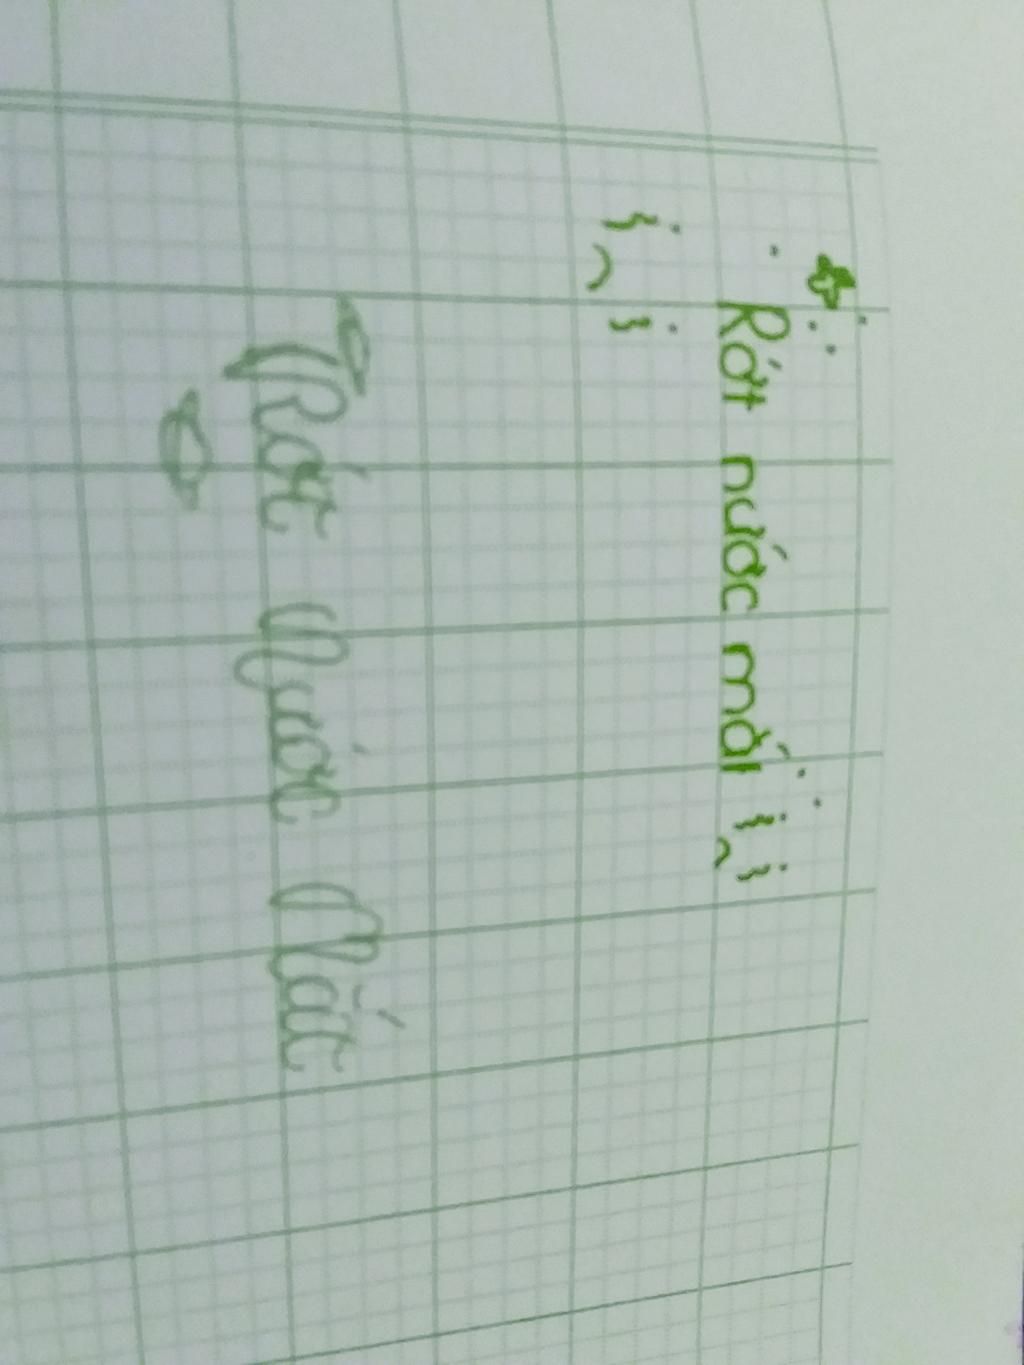 Rớt nước mắt
Rớt Nước Mắt